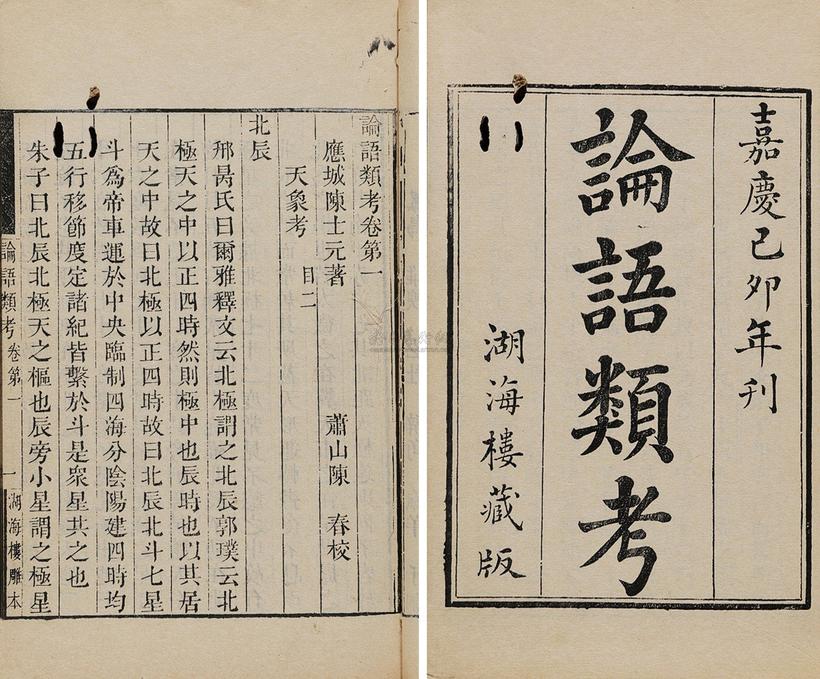 嘉慶己卯年刊
論語類考
湖海樓藏版
論語類考卷第一
應城陳士元著 蕭山陳 春校
天象考 目二
北辰
邢昺氏曰爾雅釋文云北極謂之北辰郭璞云北
極天之中以正四時然則極中也辰時也以其居
天之中故曰北極以正四時故曰北辰北斗七星
斗爲帝車運於中央臨制四海分陰陽建四時均
五行移節度定諸紀皆繫於斗是衆星共之也
朱子曰北辰北極天之樞也辰旁小星謂之極星
論語類考 卷第一 一 湖海樓雕本